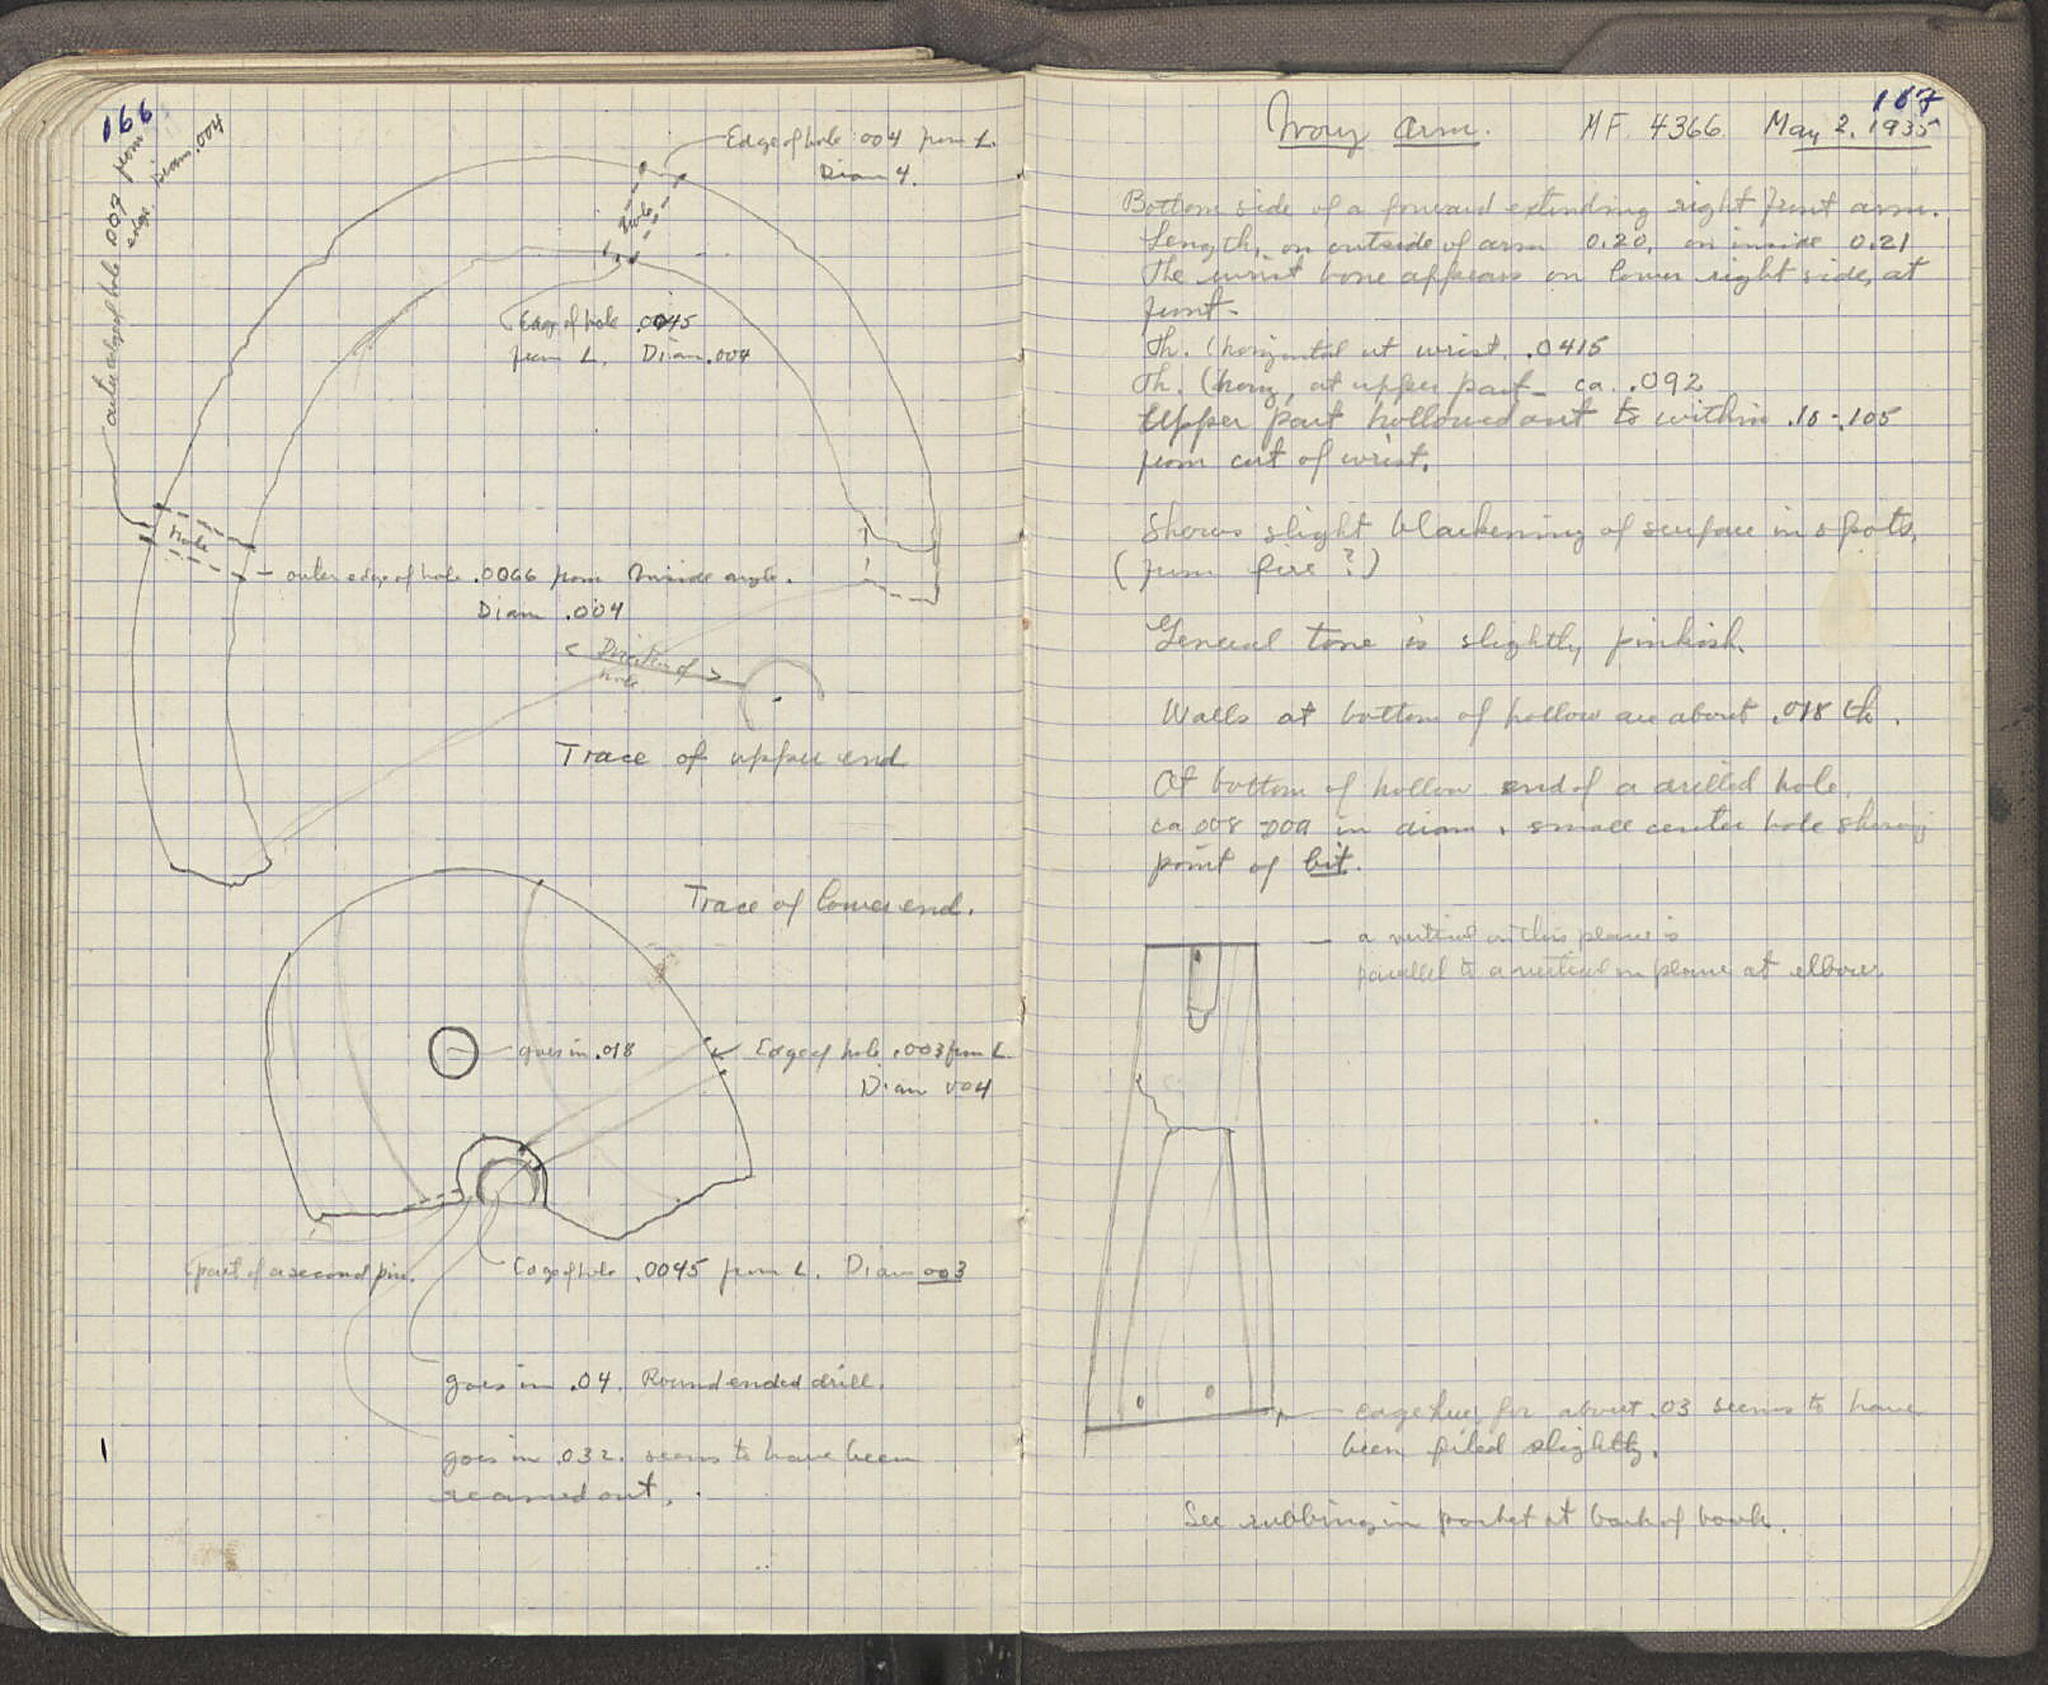 166
outer edge of hole .007 from
edge. Diam .004
Edge of hole .004 from L.
Diam 4.
hole
Edge of hole .0045
from L. Diam .004
hole
outer edge of hole .0066 from inside angle.
Diam .004
< Direction of >
hole
Trace of upper end
Trace of lower end.
goes in .018
Edge of hole .003 from L
Diam 004
part of a second pin.
Edge of hole .0045 from L. Diam 003
goes in .04. Round ended drill.
goes in .032. seems to have been
reamed out.
167
Ivory Arm. MF 4366 May 2, 1935
Bottom side of a forward extending right front arm.
Length, on outside of arm 0.20, on inside 0.21
The wrist bone appears on lower right side, at
front.
Th. (horizontal at wrist. .0415
Th. (horiz, at upper part - ca. .092
Upper part hollowed out to within .10-.105
from cut of wrist.
Shows slight blackening of surface in spots,
(from fire?)
General tone is slightly pinkish.
Walls at bottom of hollow are about .018 th.
At bottom of hollow end of a drilled hole,
ca 008-009 in diam. small center hole showing
point of bit.
— a vertical on this plane is
parallel to a vertical on plane at elbow
edge here, for about .03 seems to have
been filed slightly.
See rubbing in pocket at back of book.